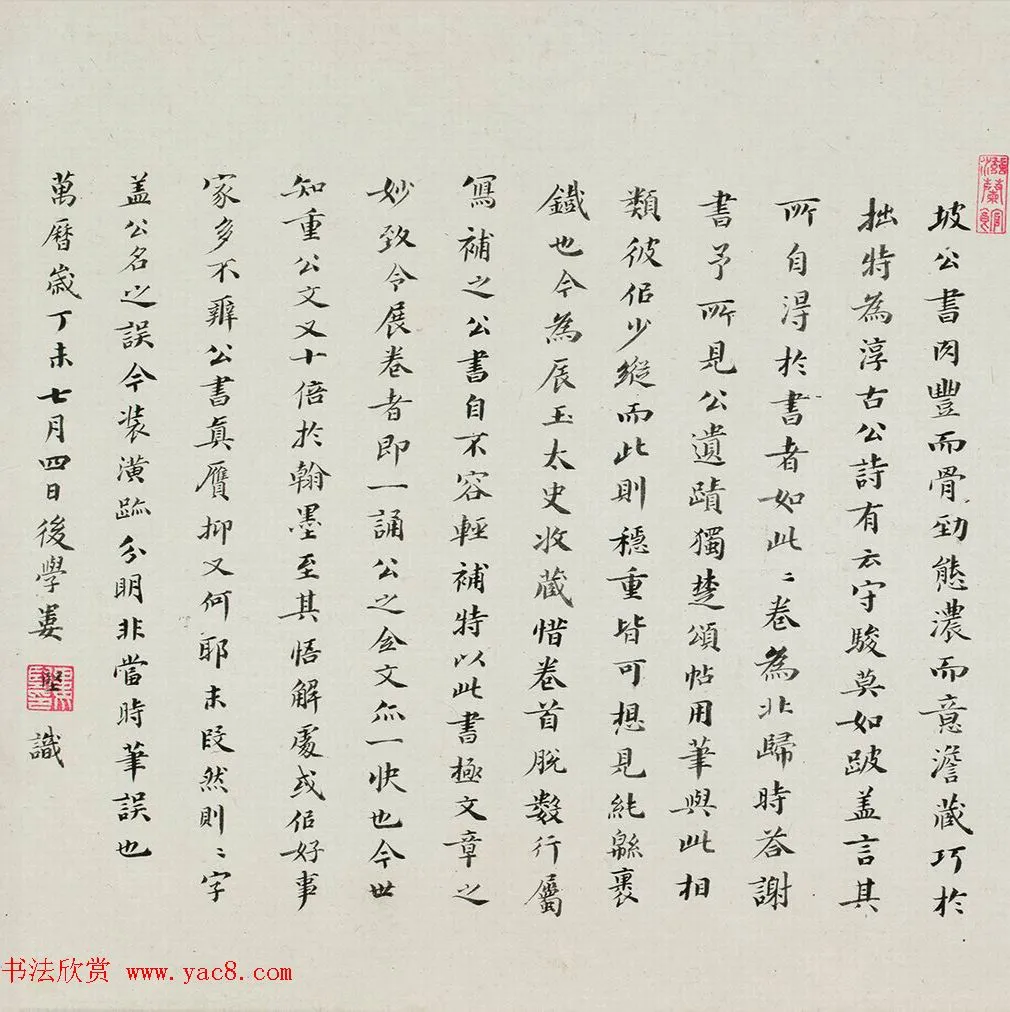 坡公書肉豐而骨勁態濃而意澹藏巧於
拙特為淳古公詩有云守駿莫如跛盖言其
所自得於書者如此〻卷為北歸時答謝
書予所見公遺蹟獨楚頌帖用筆與此相
類彼但少縱而此則穩重皆可想見純緜裹
鐵也今為辰玉太史收藏惜卷首脫數行屬
寫補之公書自不容輕補特以此書極文章之
妙致令展卷者即一誦公之全文亦一快也今世
知重公文又十倍於翰墨至其悟解處或但好事
家多不辨公書真贗抑又何耶末段然則〻字
盖公名之誤今装潢跡分明非當時筆誤也
萬曆歲丁未七月四日後學婁堅識
书法欣赏 www.yac8.com